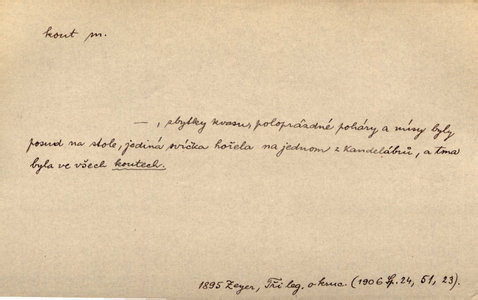 kout m.
—, zbytky kvasu, poloprázdné poháry a mísy byly
posud na stole, jediná svíčka hořela na jednom z kandelábrů, a tma
byla ve všech koutech.
1895 Zeyer, Tři leg. o kruc. (1906 Sp. 24, 51, 23).